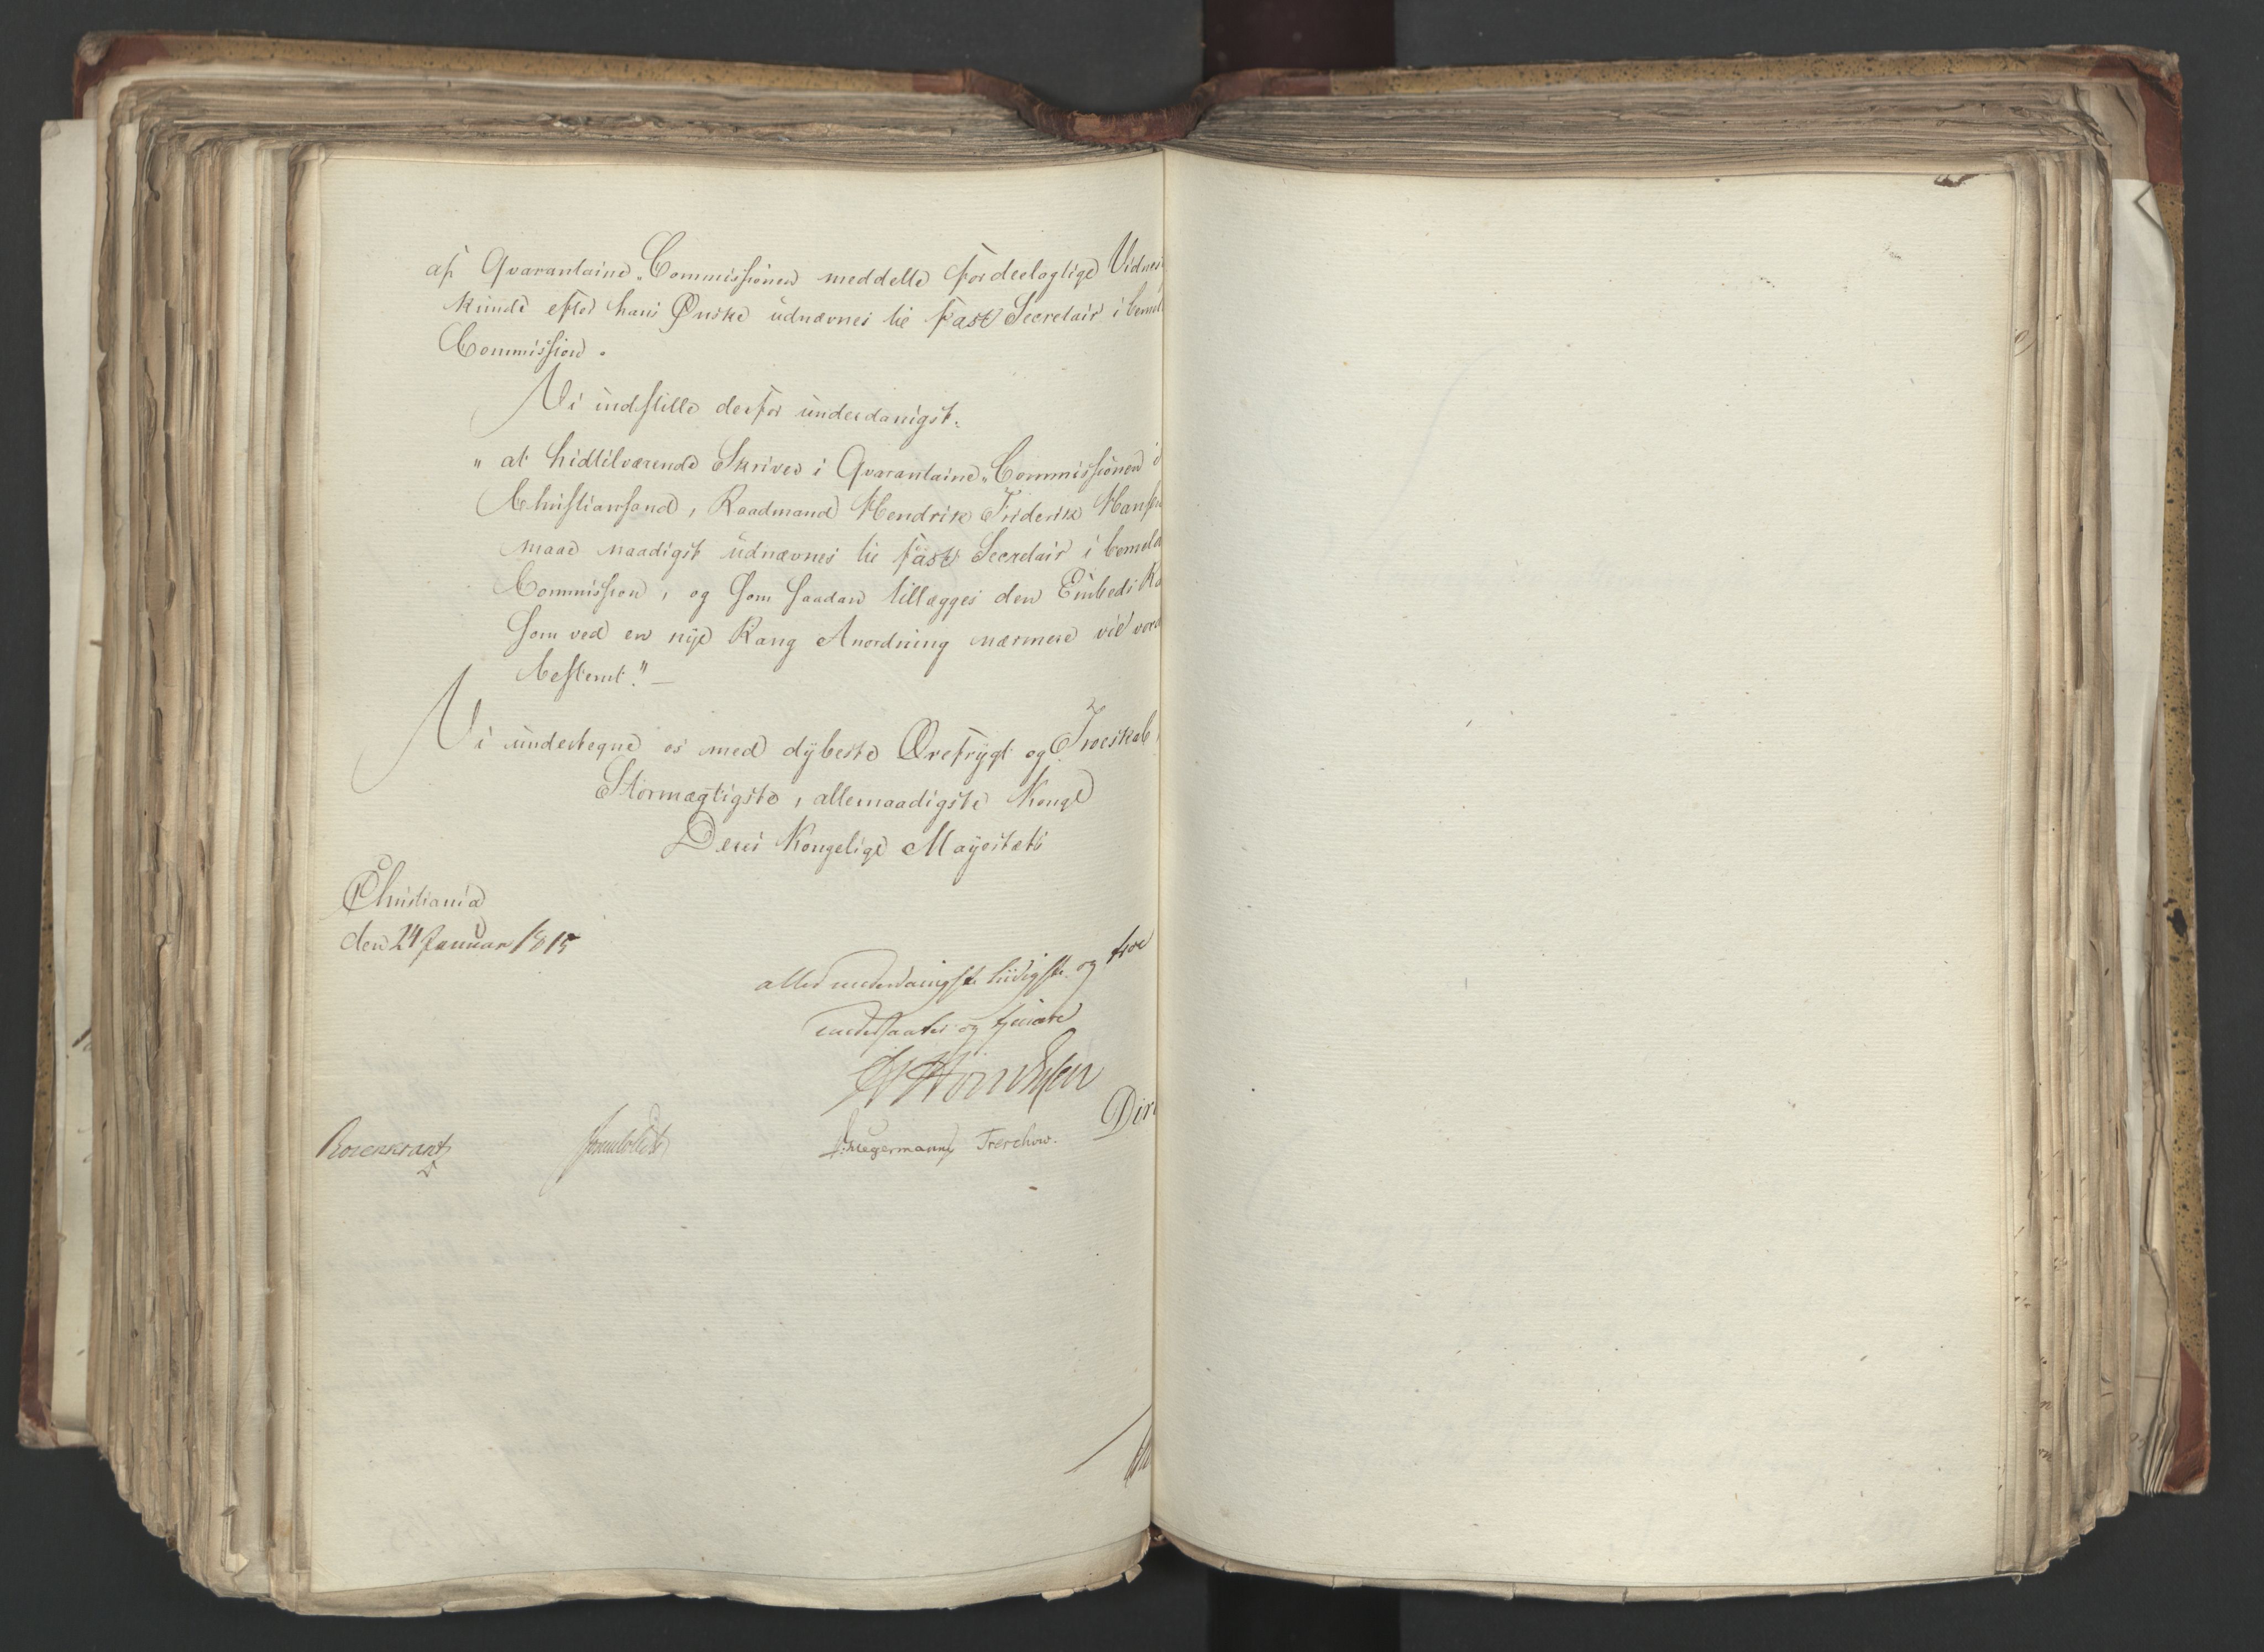 af Qvarantaine-Commissionen meddelte fordeelagtige Vidnes
kunde efter hans Ønske udnævnes til fast Secretair i bemel
Commission.
Vi indstille derfor underdanigst:
" at hidtilværende Skriver i Qvarantaine-Commissionen i
Christiansand, Raadmand Hendrik Friderik Hansen
maae naadigst udnævnes til fast Secretair i bemeld
Commission, og som saadan tillægges den Embeds Ra
som ved en nye Rang Anordning nærmere vil vord
bestemt." —
Vi undertegne os med dybeste Ærefrygt og Troeskab,
Stormægtigste, allernaadigste Konge
Deres Kongelige Mayestæts
Christiania
den 24 Januar 1815
allerunderdanigste lydigste og troe
undersaatter og tjenere
Dir
Rosenkrantz Sommhielm Hegermann Treschow.